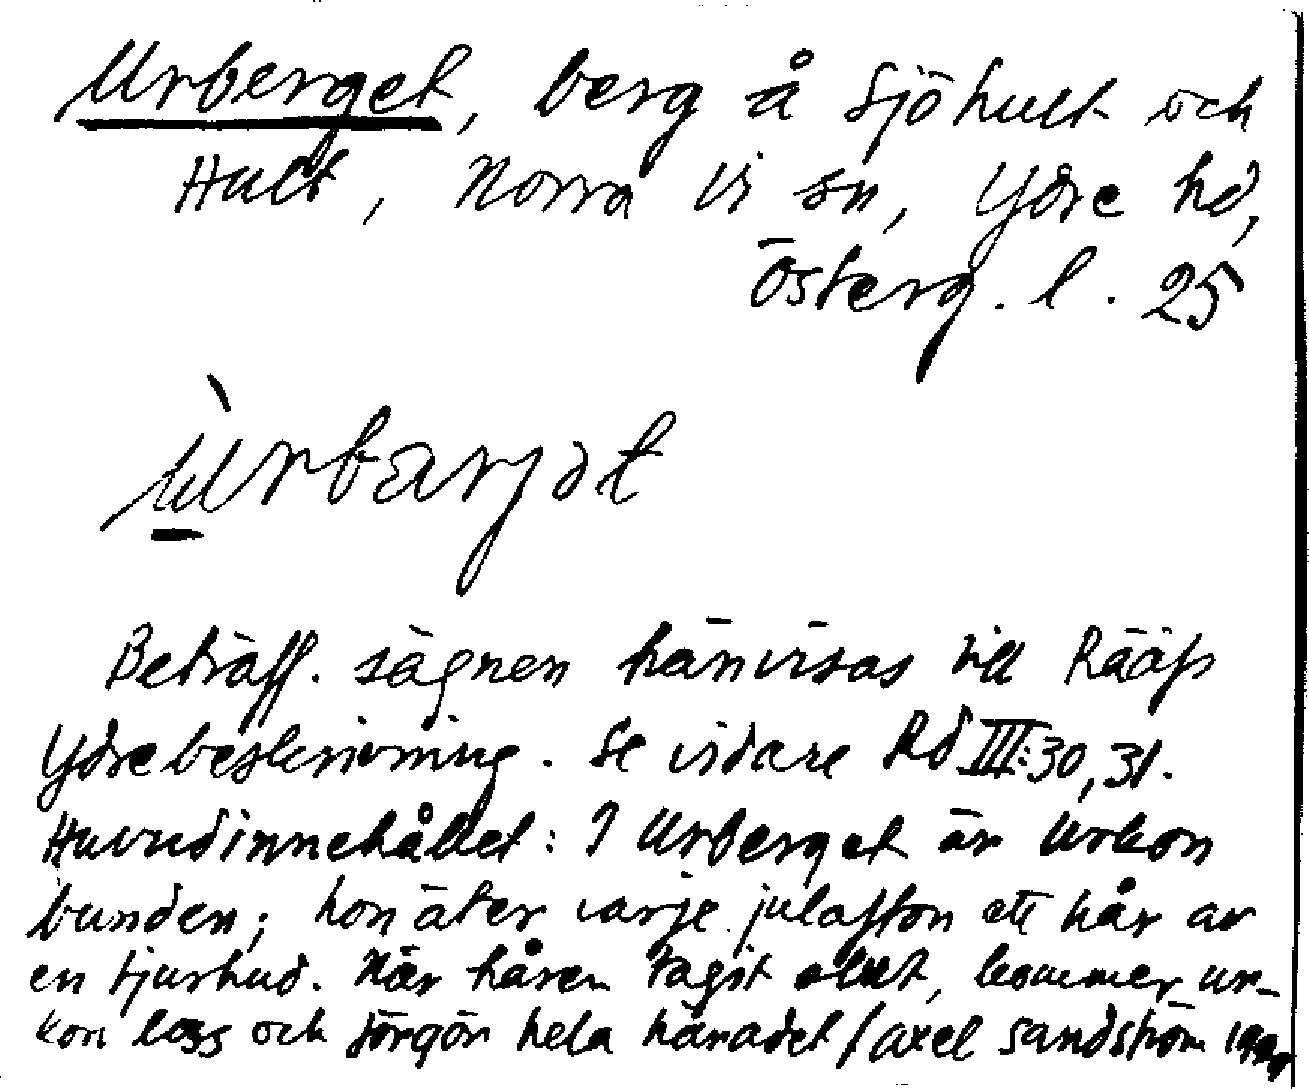 Urberget, berg å Sjöhult och
Hult, Norra Vi sn, Ydre hd,
Österg. l. 25
ùrbarjət
Beträff. sägnen hänvisas till Rääfs
Ydrebeskrivning. Se vidare Rd III:30, 31.
Huvudinnehållet: I Urberget är Urkon
bunden; hon äter varje julafton ett hår av
en tjurhud. När håren tagit slut, kommer ur-
kon loss och förgör hela häradet / Axel Sandström